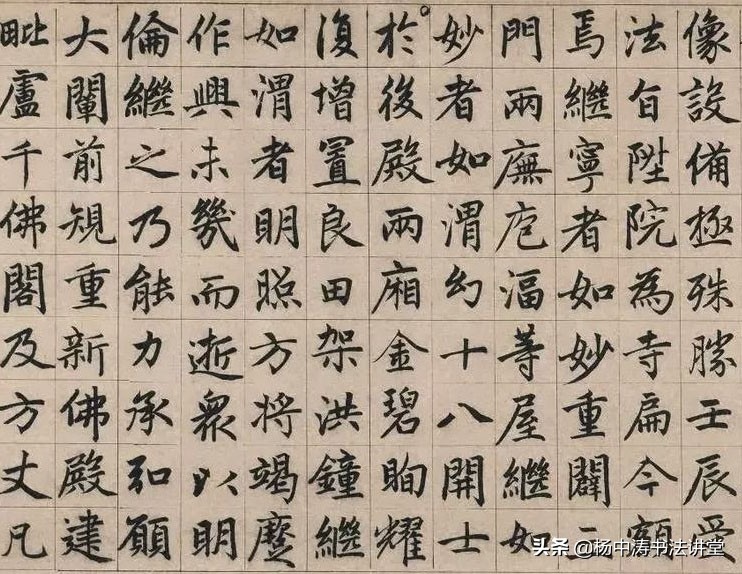 像設備極殊勝壬辰受
法旨陞院為寺扁今額
焉繼寧者如妙重闢三
門兩廡庖湢等屋繼如
妙者如渭幻十八開士
於後殿兩廂金碧眴耀
復增置良田架洪鐘繼
如渭者明照方將竭
作興未幾而逝衆以明
倫繼之乃能力承弘願
大闡前規重新佛殿建
毗盧千佛閣及方丈凡
头条 @杨中涛书法讲堂